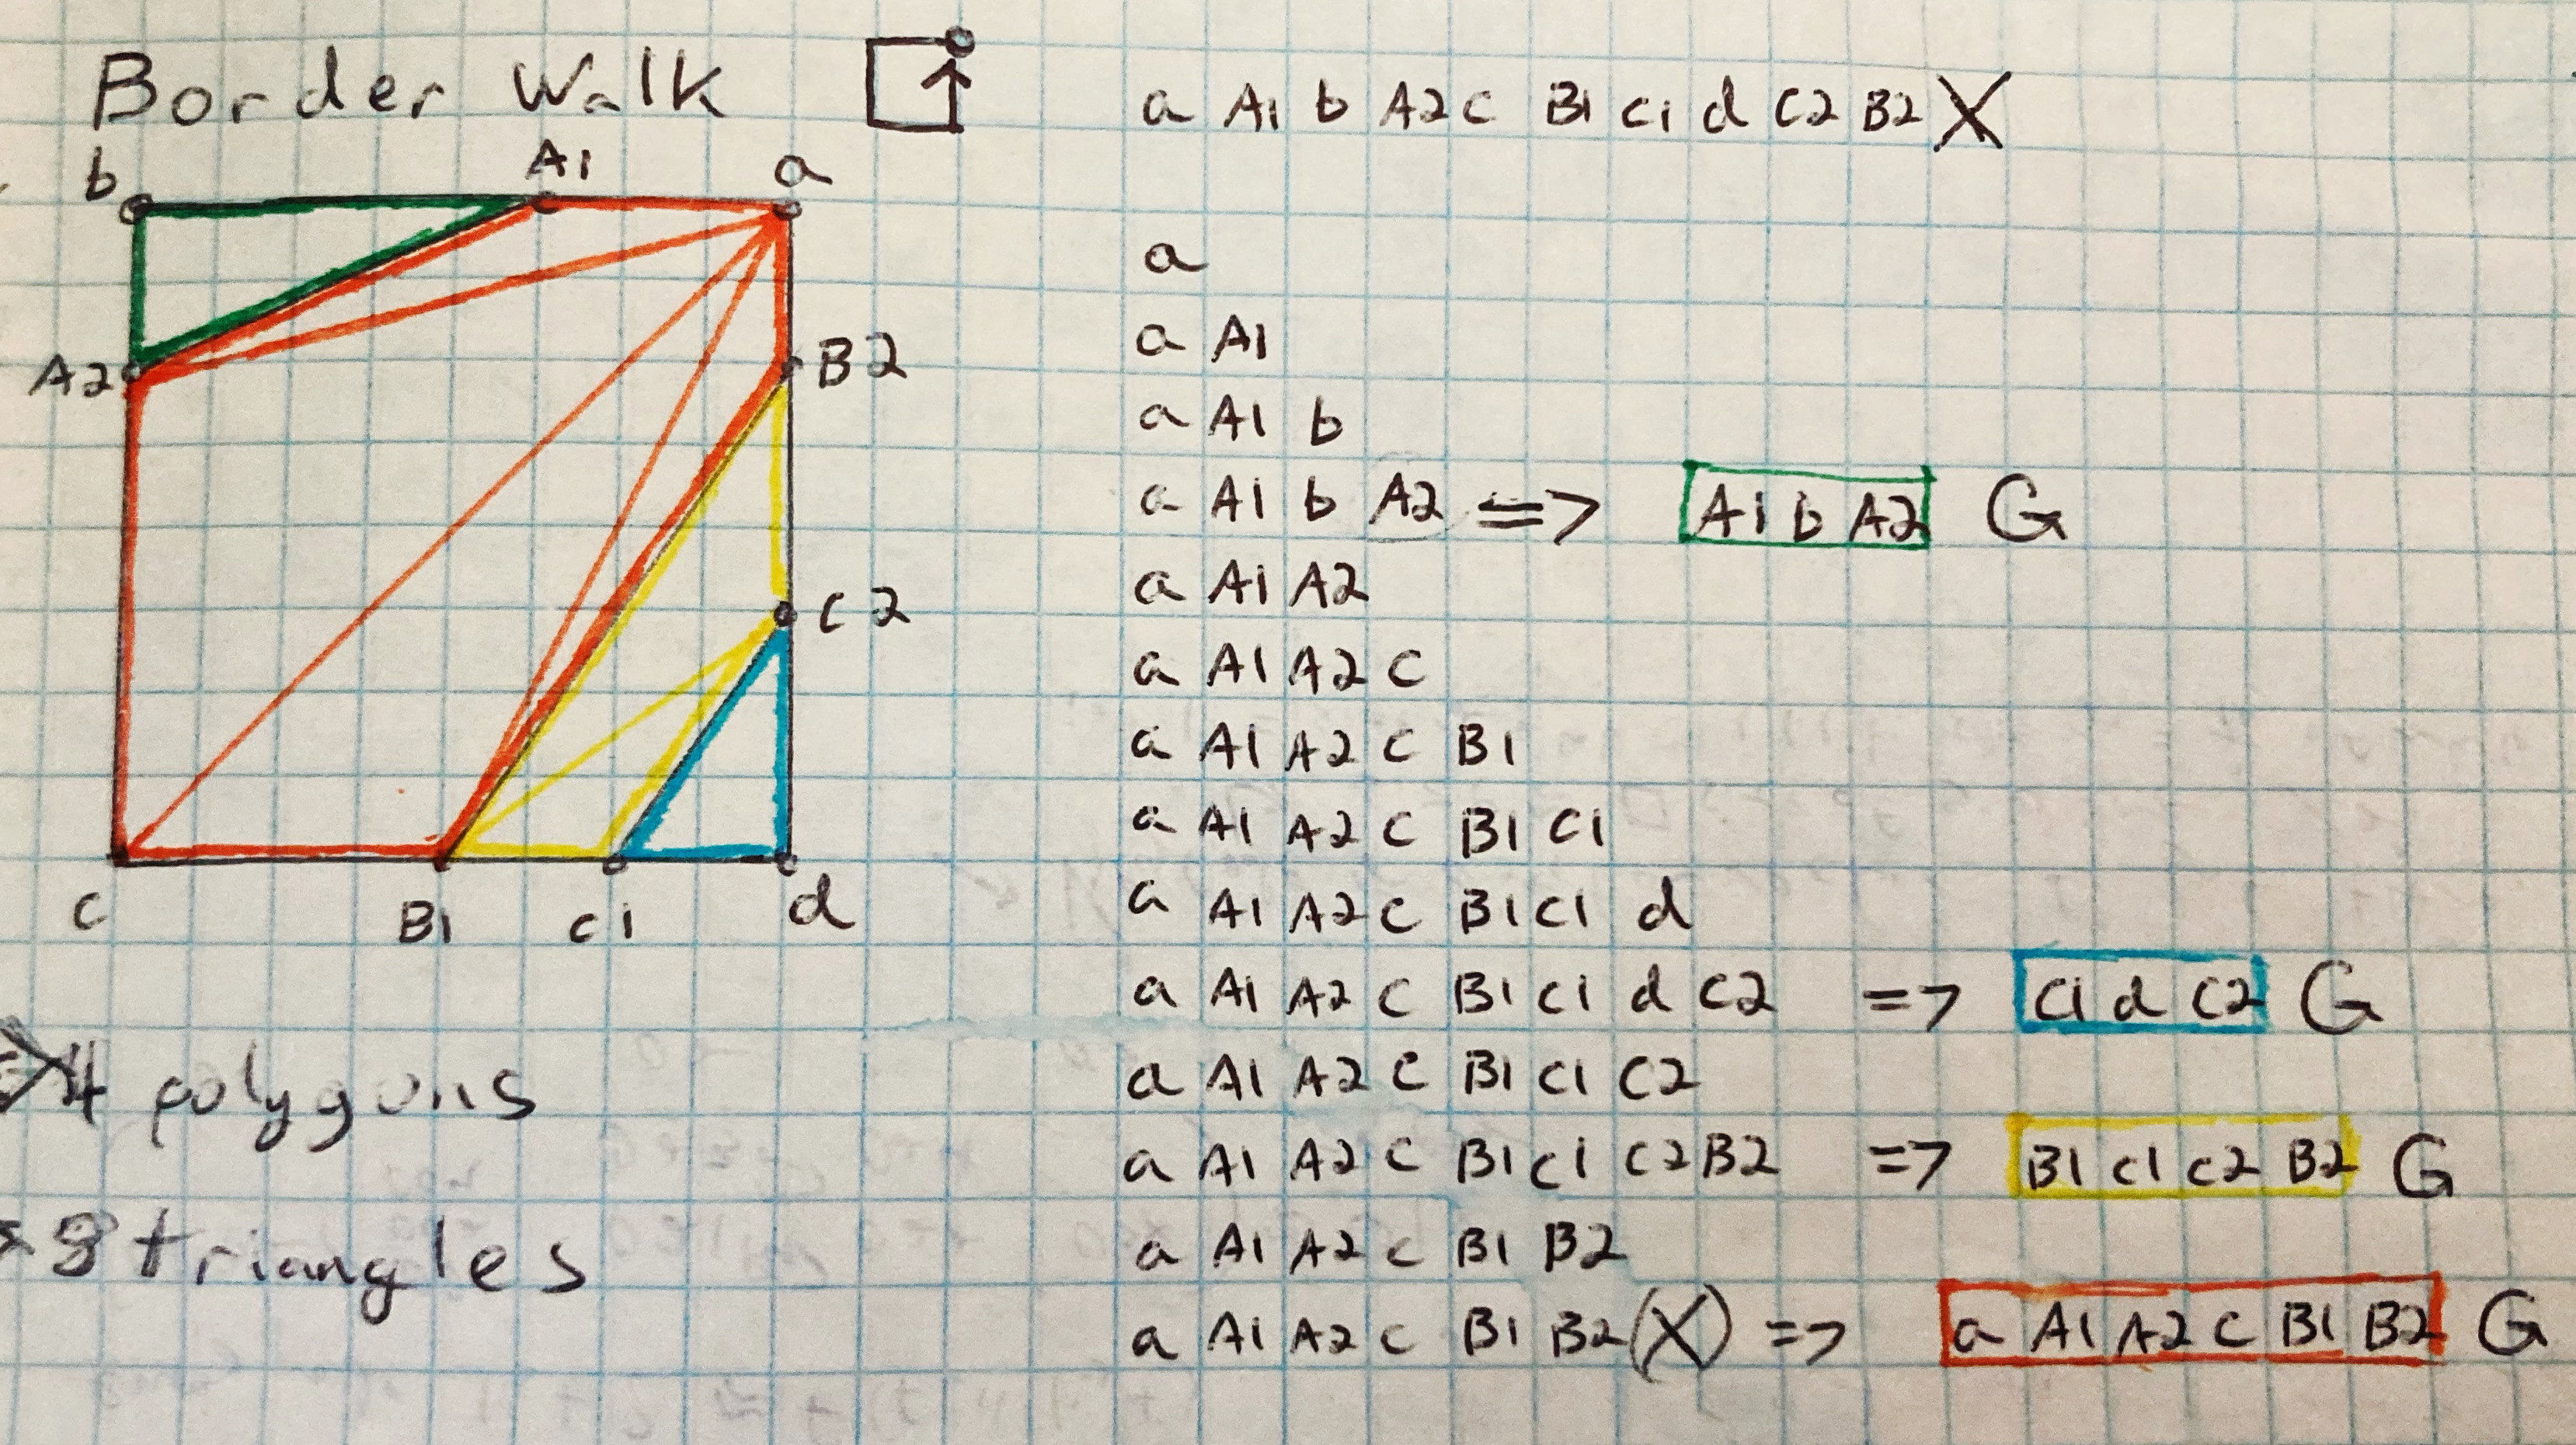 Border Walk
a A1 b A2 c B1 C1 d C2 B2 X
b A1 a
A2 B2
C2
c B1 C1 d
4 polygons
8 triangles
a
a A1
a A1 b
a A1 b A2 => A1 b A2 G
a A1 A2
a A1 A2 c
a A1 A2 c B1
a A1 A2 c B1 C1
a A1 A2 c B1 C1 d
a A1 A2 c B1 C1 d C2 => C1 d C2 G
a A1 A2 c B1 C1 C2
a A1 A2 c B1 C1 C2 B2 => B1 C1 C2 B2 G
a A1 A2 c B1 B2
a A1 A2 c B1 B2 (X) => a A1 A2 c B1 B2 G